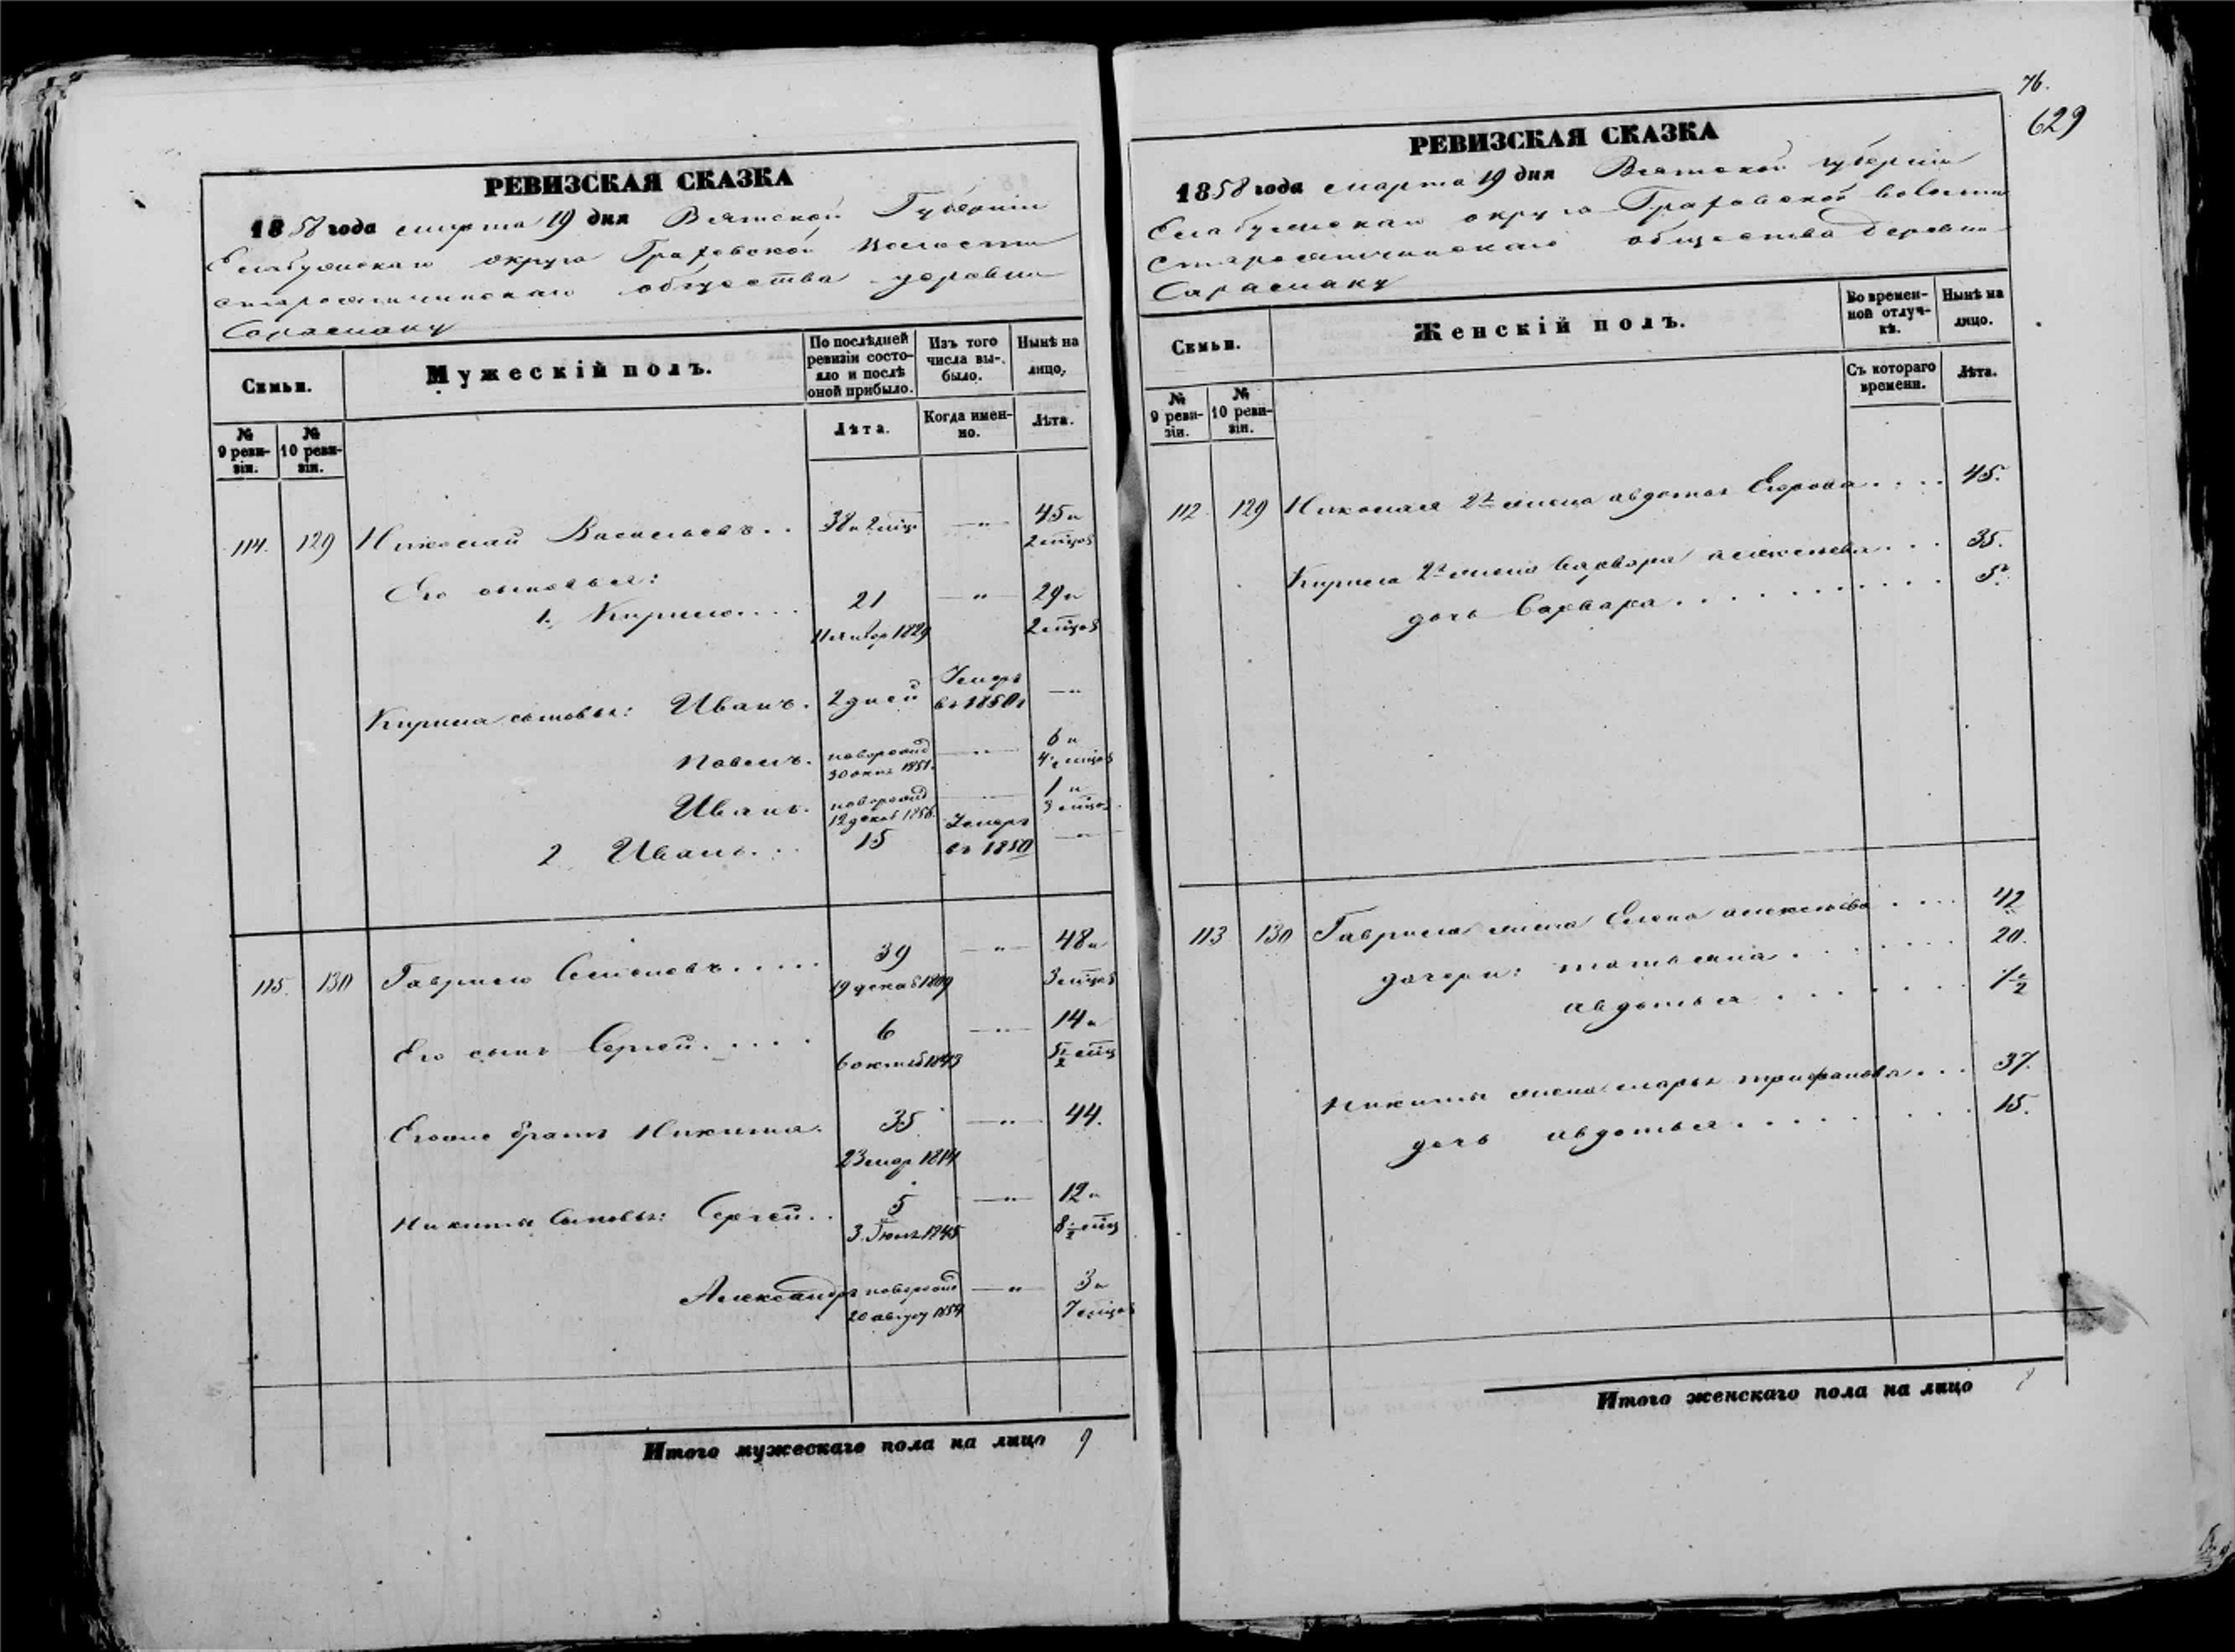 РЕВИЗСКАЯ СКАЗКА
1858 года марта 19 дня Вятской Губерніи
Елабужскаго округа Граховской Волости
общества деревни
Сарамаку
Семьи.
Мужескій полъ.
По послѣдней ревизіи состояло и послѣ оной прибыло.
Изъ того числа выбыло.
Нынѣ на лицо.
№ 9 ревизіи.
№ 10 ревизіи.
Лѣта.
Когда именно.
Лѣта.
114. 129 Николай Васильевъ . . 38 и 2 міц. — " — 45 и 2 міцов
Его сыновья:
1. Кирило . . . . 21 — " — 29 и 2 міцов
1829
Кирила сыновья: Иванъ. 2 дней Умеръ въ 1850 г — " —
Павелъ. новорожд 30 окт 1851. — " — 6 и 4 ½ міцов
Иванъ. новорожд 12 декаб 1856. — 1 и 3 міцов
2 Иванъ . . . 15 Умеръ въ 1850 — " —
115. 130 Гаврило Семеновъ . . . . . 39 — " — 48 и
19 декаб 1809 3 міцов
Его сынъ Сергей . . . . . 6 — " — 14 и
6 октяб 1843 5 ½ міц
Егоже братъ Никита. 35 — " — 44.
23 мар 1814
Никиты Сыновья: Сергей . . 5 — " — 12 и
3 Іюля 1845 8 ½ міц
Александръ новорожд — " — 3 и
20 август 1854 7 міцов
Итого мужескаго пола на лицо 9
76.
629
РЕВИЗСКАЯ СКАЗКА
1858 года марта 19 дня Вятской губерніи
Елабужскаго округа Граховской волости
общества деревни
Сарамаку
Семьи.
Женскій полъ.
Во временной отлучкѣ.
Нынѣ на лицо.
№ 9 ревизіи.
№ 10 ревизіи.
Съ котораго времени.
Лѣта.
112 129 Николая 2я жена авдотья Егорова . . . . 45.
Кирила 2я жена Варвара алексѣева . . . 35.
дочь Варвара . . . . . . . . . . .
113 130 Гаврила жена Елена алексѣева . . . . 42
дочери: татьяна . . . . . . . 20.
авдотья . . . . . . . ½
Никиты жена марья трифанова . . . 37.
дочь авдотья . . . . . . . . 15.
Итого женскаго пола на лицо